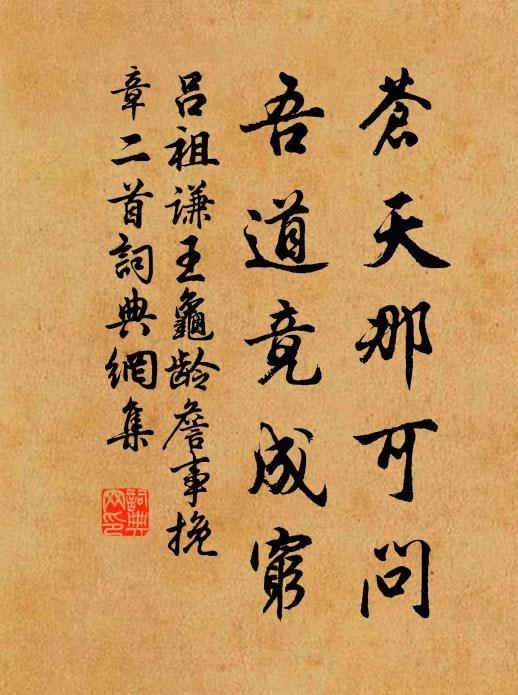 蒼天那可問
吾道竟成窮
呂祖谦王龜龄詹事挽
章二首詞典網集
詞典网印